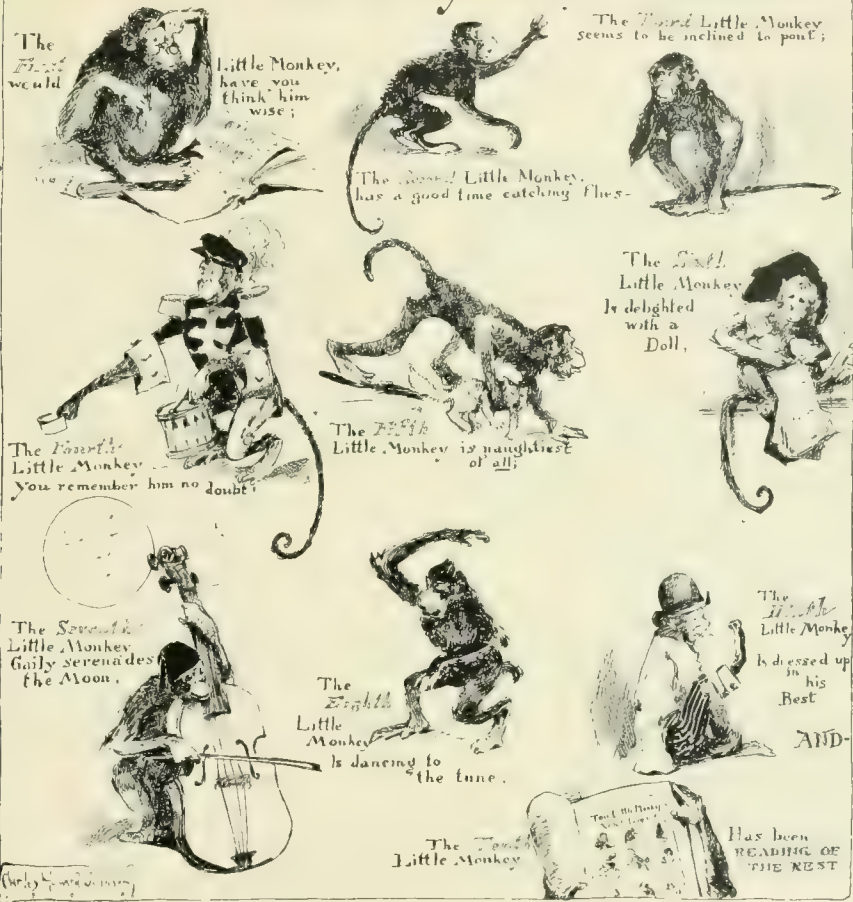 The
First
would
Little Monkey,
have you
think him
wise;
The Second Little Monkey,
has a good time catching flies-
The Third Little Monkey
seems to be inclined to pout;
The Fourth
Little Monkey
you remember him no doubt;
The Fifth
Little Monkey is naughtiest
of all;
The Sixth
Little Monkey
Is delighted
with a
Doll,
The Seventh
Little Monkey
Gaily serenades
the Moon,
The
Eighth
Little
Monkey
Is dancing to
the tune.
The
Ninth
Little Monkey
Is dressed up
in
his
Best
AND-
The Tenth
Little Monkey
Has been
READING OF
THE REST